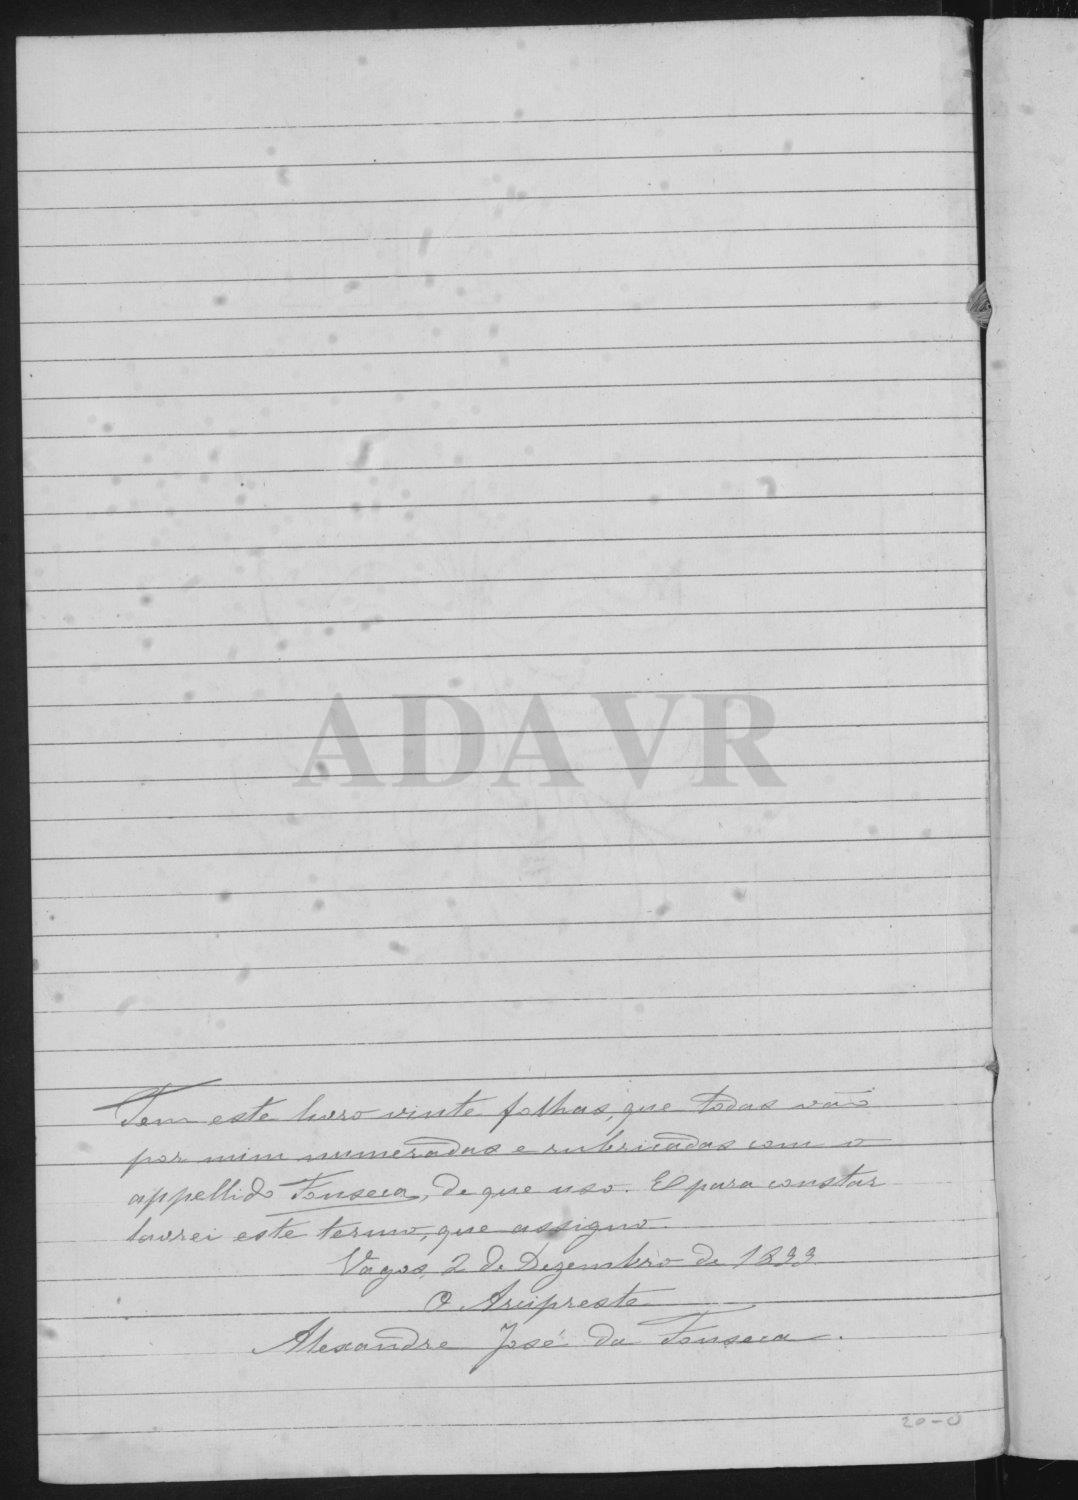 ADAVR
Tem este livro vinte folhas, que todas vão
por mim numeradas e rubricadas com o
appellido Fonseca, de que uso. E para constar
lavrei este termo, que assigno.
Vagos, 2 de Dezembro de 1899
O Arcipreste
Alexandre José da Fonseca.
20-v